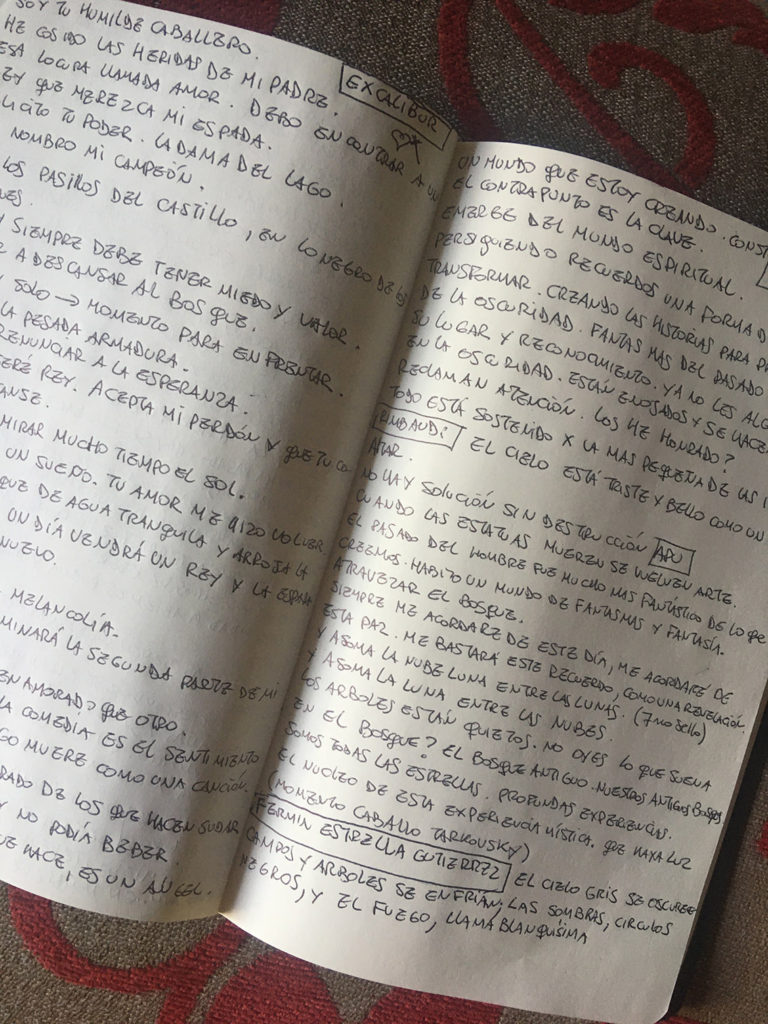 SOY TU HUMILDE CABALLERO.
HE COSIDO LAS HERIDAS DE MI PADRE.
ESA LOCURA LLAMADA AMOR. DEBO ENCONTRAR A UN
EXCALIBUR
REY QUE MEREZCA MI ESPADA.
TU PODER. LA DAMA DEL LAGO.
NOMBRO MI CAMPEÓN.
LOS PASILLOS DEL CASTILLO, EN LO NEGRO DE LOS
SIEMPRE DEBE TENER MIEDO Y VALOR.
A DESCANSAR AL BOSQUE.
SOLO → MOMENTO PARA ENFRENTAR.
LA PESADA ARMADURA.
RENUNCIAR A LA ESPERANZA.
SERÉ REY. ACEPTA MI PERDÓN Y QUE TU CO
MIRAR MUCHO TIEMPO EL SOL.
UN SUEÑO. TU AMOR ME HIZO VOLVER
QUE DE AGUA TRANQUILA Y ARROJA LA
UN DÍA VENDRÁ UN REY Y LA ESPADA
NUEVO.
MELANCOLÍA.
MINARÁ LA SEGUNDA PARTE DE MI
ENAMORADO QUE OTRO.
LA COMEDIA ES EL SENTIMIENTO
GO MUERE COMO UNA CANCIÓN.
RADO DE LOS QUE HACEN SUDAR
Y NO PODÍA BEBER.
UE HACE, ES UN ANGEL.
UN MUNDO QUE ESTOY CREANDO. CONST
EL CONTRAPUNTO ES LA CLAVE.
EMERGE DEL MUNDO ESPIRITUAL.
PERSIGUIENDO RECUERDOS UNA FORMA D
TRANSFORMAR. CREANDO LAS HISTORIAS PARA
DE LA OSCURIDAD. FANTASMAS DEL PASADO
SU LUGAR Y RECONOCIMIENTO. YA NO LES ALC
EN LA OSCURIDAD. ESTÁN ENOJADOS Y SE HACEN
RECLAMAN ATENCIÓN. LOS HE HONRADO?
TODO ESTÁ SOSTENIDO X LA MAS PEQUEÑA DE LAS
RIMBAUD: EL CIELO ESTÁ TRISTE Y BELLO COMO UN
ALTAR.
NO HAY SOLUCIÓN SIN DESTRUCCIÓN APU
CUANDO LAS ESTATUAS MUEREN SE VUELVEN ARTE.
EL PASADO DEL HOMBRE FUE MUCHO MAS FANTÁSTICO DE LO QE
CREEMOS. HABITO UN MUNDO DE FANTASMAS Y FANTASÍA.
ATRAVEZAR EL BOSQUE.
SIEMPRE ME ACORDARE DE ESTE DÍA, ME ACORDARÉ DE
ESTA PAZ. ME BASTARÁ ESTE RECUERDO, COMO UNA REVELACIÓN.
Y ASOMA LA NUBE LUNA ENTRE LAS LUNAS. (7MO SELLO)
Y ASOMA LA LUNA ENTRE LAS NUBES.
LOS ARBOLES ESTÁN QUIETOS. NO OYES LO QUE SUENA
EN EL BOSQUE? EL BOSQUE ANTIGUO. NUESTROS ANTIGOS BOSQES
SOMOS TODAS LAS ESTRELLAS. PROFUNDAS EXPERIENCIAS.
EL NUCLEO DE ESTA EXPERIENCIA MÍSTICA. QUE HAYA LUZ
(MOMENTO CABALLO TARKOVSKY)
FERMIN ESTRELLA GUTIERREZ EL CIELO GRIS SE OSCURECE
CAMPOS Y ARBOLES SE ENFRÍAN; LAS SOMBRAS, CIRCULOS
NEGROS, Y EL FUEGO, LLAMA BLANQUÍSIMA